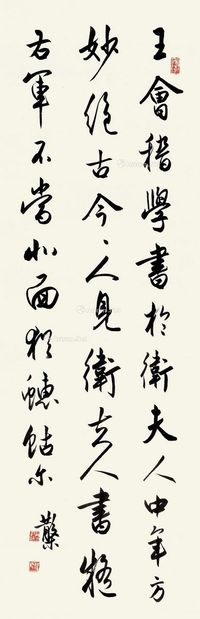 王會稽學書於衛夫人中年方
妙絕古今、人見衛夫人書疑
右軍不當北面猶蟪蛄尔